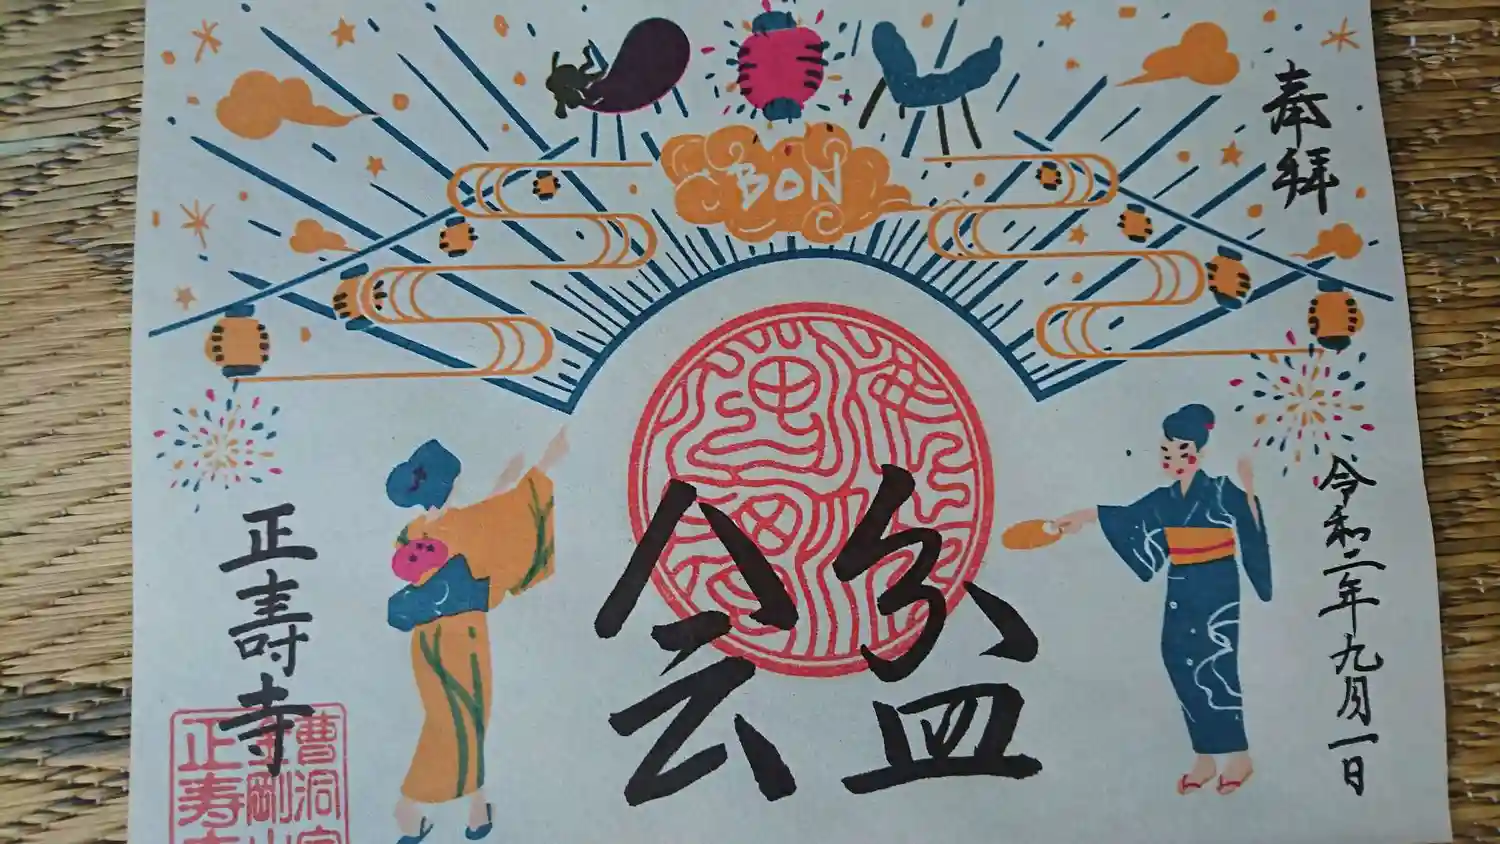 奉拝
令和二年九月一日
BON
盆会
正壽寺
曹洞宗
金剛山
正寿寺